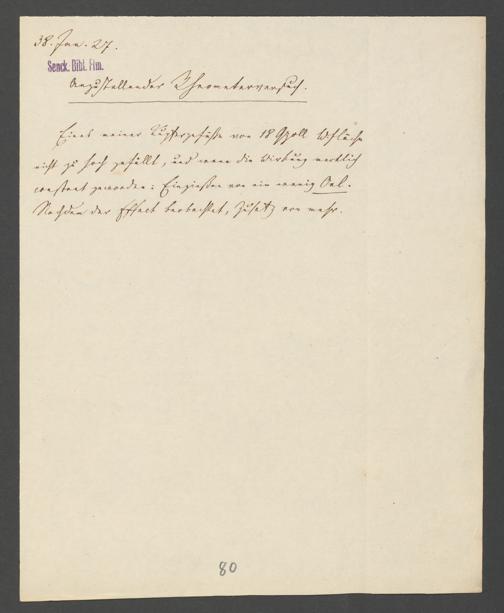 38. Jan. 27.
Senck. Bibl. Ffm.
Anzustellender Rheometerversuch.
Eines meiner Kupfergefäße von 18 Qzoll Obfläche
nicht zu hoch gefüllt, und wenn die Wirkung merklich
constant geworden: Eingießen von ein wenig Oel.
Nachdem der Effect beobachtet, Zusatz von mehr.
80